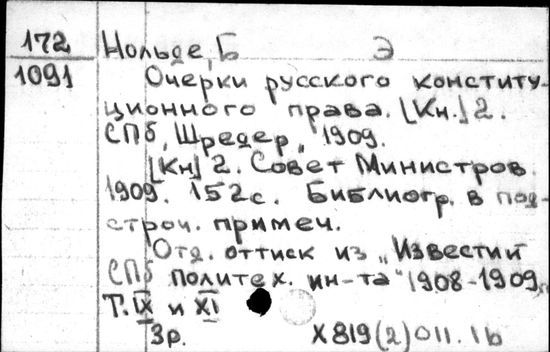 172 Нольде, Б Э
1091 Очерки русского конститу-
ционного права. [Кн.] 2.
СПб, Шредер, 1909.
[Кн] 2. Совет Министров.
1909. 152с. Библиогр. в под-
строч. примеч.
Отд. оттиск из „Известий
СПб политех. ин-та" 1908-1909г.
Т. IX и XI
3р. X819(2)011.1б